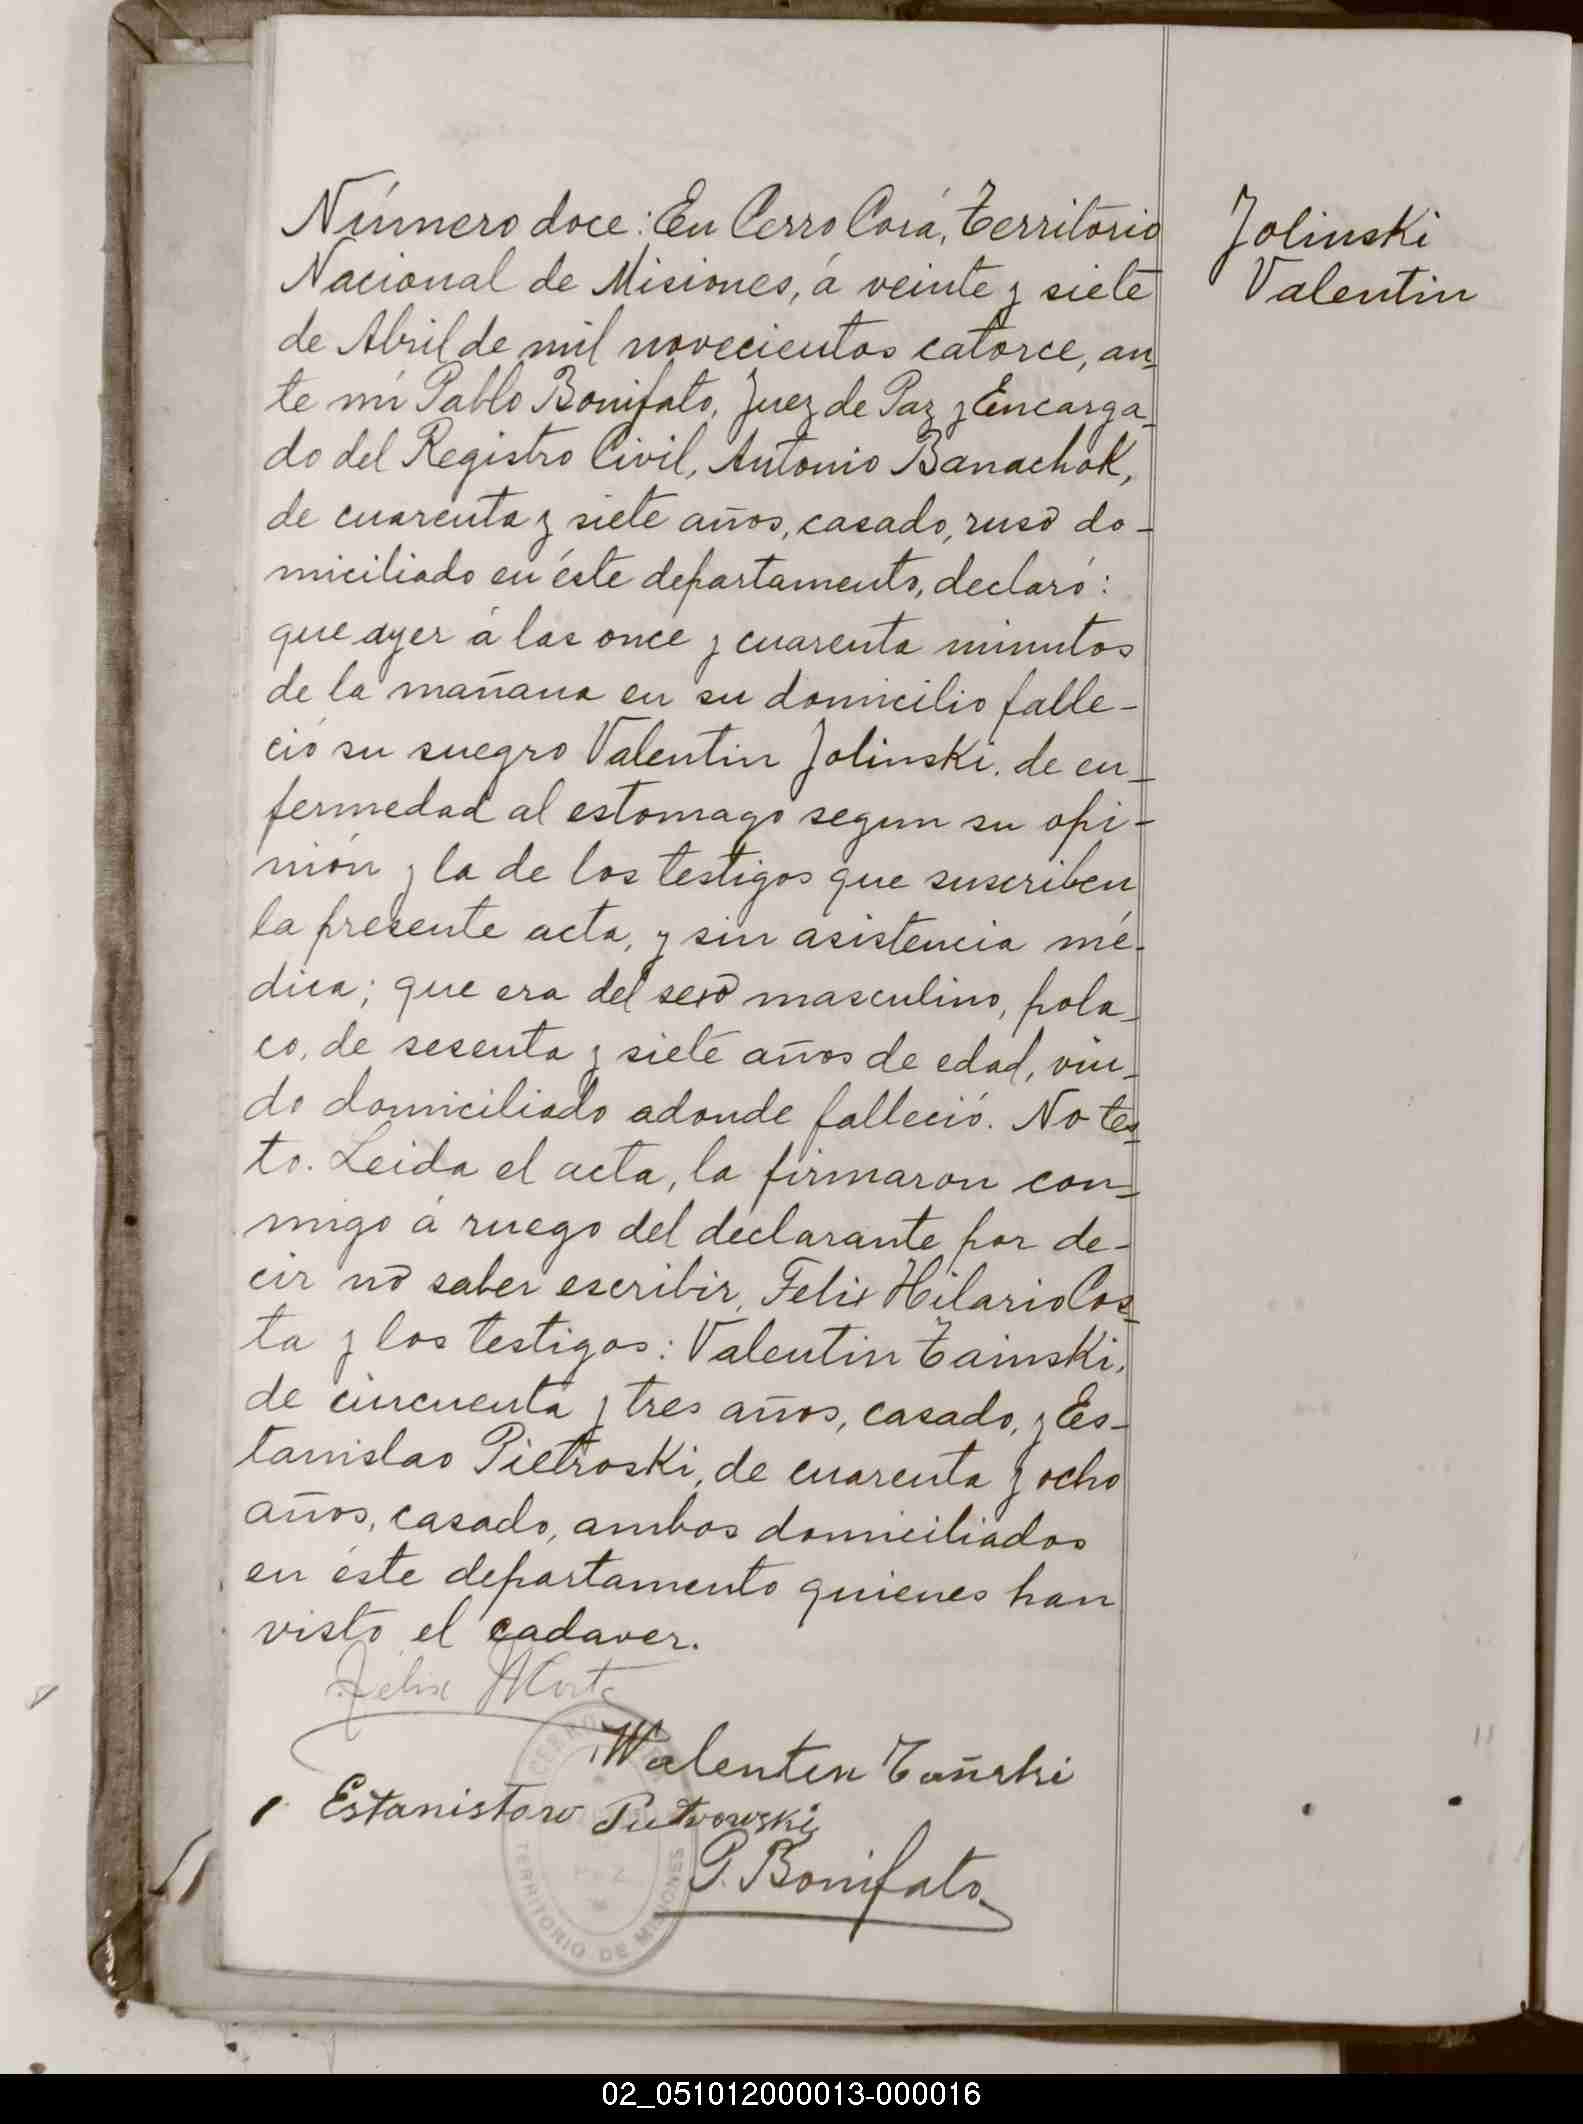 Número doce: En Cerro Corá, Territorio
Nacional de Misiones, á veinte y siete
de Abril de mil novecientos catorce, an-
te mi Pablo Bonifato, Juez de Paz y Encarga-
do del Registro Civil, Antonio Banachok,
de cuarenta y siete años, casado, ruso do-
miciliado en éste departamento, declaró:
que ayer á las once y cuarenta minutos
de la mañana en su domicilio falle-
ció su suegro Valentin Jolinski. de en-
fermedad al estomago segun su opi-
nión y la de los testigos que suscriben
la presente acta, y sin asistencia mé-
dica; que era del sexo masculino, pola-
co, de sesenta y siete años de edad, viu-
do domiciliado adonde falleció. No tes-
to. Leida el acta, la firmaron con-
migo á ruego del declarante por de-
cir no saber escribir, Felix Hilario Cos-
ta y los testigos: Valentin Tainski,
de cincuenta y tres años, casado, y Es-
tanislao Pietroski, de cuarenta y ocho
años, casado, ambos domiciliados
en éste departamento quienes han
visto el cadaver.
Jolinski
Valentin
Félix
Walenten Tañski
Estanistaw
P. Bonifato
CERRO
TERRITORIO DE MISIONES
02_051012000013-000016